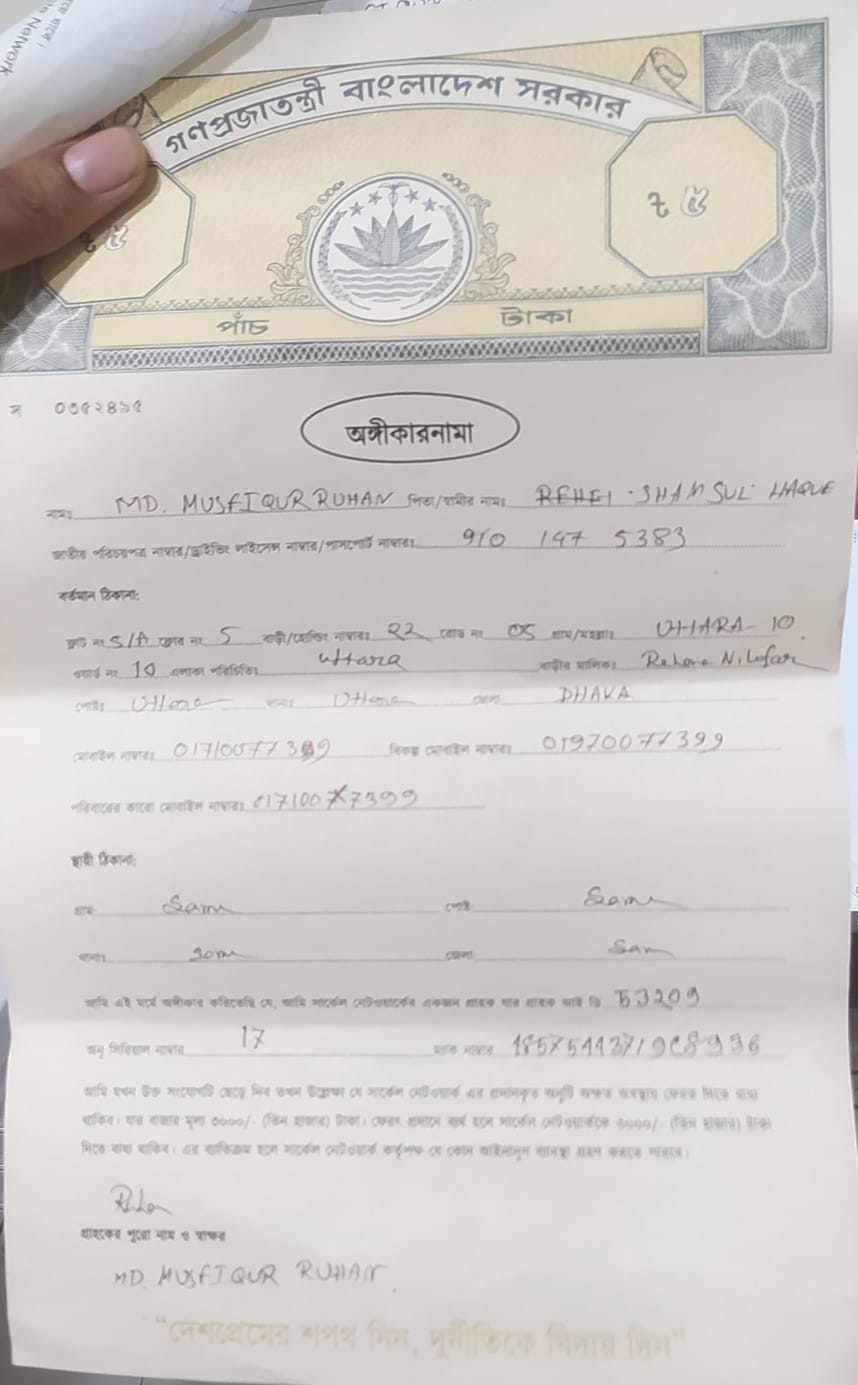 n Network
গণপ্রজাতন্ত্রী বাংলাদেশ সরকার
৳ ৫ ৳ ৫
পাঁচ টাকা
স ০৩৫২৪১৫
অঙ্গীকারনামা
নামঃ MD. MUSFIQUR RUHAN পিতা/স্বামীর নামঃ SHAMSUL HAQUE
জাতীয় পরিচয়পত্র নাম্বার/ড্রাইভিং লাইসেন্স নাম্বার/পাসপোর্ট নাম্বারঃ 910 147 5383
বর্তমান ঠিকানা:
ফ্লাট নং 5/A ফ্লোর নং 5 বাড়ী/হোল্ডিং নাম্বারঃ 22 রোড নং 05 গ্রাম/মহল্লাঃ UTTARA-10
ওয়ার্ড নং 10 এলাকা পরিচিতিঃ Uttara বাড়ীর মালিকঃ Rehena Nilufar
পোষ্টঃ Uttara থানাঃ Uttara জেলা DHAKA
মোবাইল নাম্বারঃ 01710077399 বিকল্প মোবাইল নাম্বারঃ 01970077399
পরিবারের কারো মোবাইল নাম্বারঃ 01710077399
স্থায়ী ঠিকানা:
গ্রাম Same পোষ্ট Same
থানাঃ Same জেলা Same
আমি এই মর্মে অঙ্গীকার করিতেছি যে, আমি সার্কেল নেটওয়ার্কের একজন গ্রাহক যার গ্রাহক আই ডি 53209
অনু সিরিয়াল নাম্বার 17 ম্যাক নাম্বার
আমি যখন উক্ত সংযোগটি ছেড়ে দিব তখন উল্লেখ্য যে সার্কেল নেটওয়ার্ক এর প্রদানকৃত অনুটি অক্ষত অবস্থায় ফেরত দিতে বাধ্য
থাকিব। যার বাজার মূল্য ৩০০০/- (তিন হাজার) টাকা। ফেরৎ প্রদানে ব্যর্থ হলে সার্কেল নেটওয়ার্ককে ৩০০০/- (তিন হাজার) টাকা
দিতে বাধ্য থাকিব। এর ব্যতিক্রম হলে সার্কেল নেটওয়ার্ক কর্তৃপক্ষ যে কোন আইনানুগ ব্যবস্থা গ্রহণ করতে পারবে।
গ্রাহকের পুরো নাম ও স্বাক্ষর
MD. MUSFIQUR RUHAN
"দেশপ্রেমের শপথ নিন, দুর্নীতিকে বিদায় দিন"